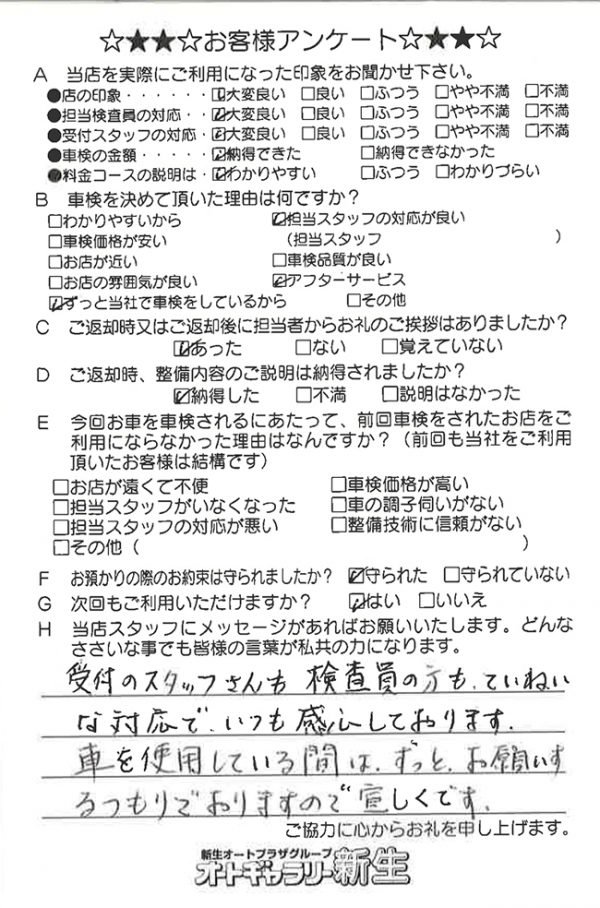 ☆★★☆お客様アンケート☆★★☆
A 当店を実際にご利用になった印象をお聞かせ下さい。
●店の印象・・・・・・☑大変良い □良い □ふつう □やや不満 □不満
●担当検査員の対応・・☑大変良い □良い □ふつう □やや不満 □不満
●受付スタッフの対応・☑大変良い □良い □ふつう □やや不満 □不満
●車検の金額・・・・・☑納得できた □納得できなかった
●料金コースの説明は・☑わかりやすい □ふつう □わかりづらい
B 車検を決めて頂いた理由は何ですか?
□わかりやすいから ☑担当スタッフの対応が良い
□車検価格が安い (担当スタッフ )
□お店が近い □車検品質が良い
□お店の雰囲気が良い ☑アフターサービス
☑ずっと当社で車検をしているから □その他
C ご返却時又はご返却後に担当者からお礼のご挨拶はありましたか?
☑あった □ない □覚えていない
D ご返却時、整備内容のご説明は納得されましたか?
☑納得した □不満 □説明はなかった
E 今回お車を車検されるにあたって、前回車検をされたお店をご
利用にならなかった理由はなんですか?(前回も当社をご利用
頂いたお客様は結構です)
□お店が遠くて不便 □車検価格が高い
□担当スタッフがいなくなった □車の調子伺いがない
□担当スタッフの対応が悪い □整備技術に信頼がない
□その他( )
F お預かりの際のお約束は守られましたか? ☑守られた □守られていない
G 次回もご利用いただけますか? ☑はい □いいえ
H 当店スタッフにメッセージがあればお願いいたします。どんな
ささいな事でも皆様の言葉が私共の力になります。
受付のスタッフさんも 検査員の方も、ていねい
な対応で、いつも感心しております。
車を使用している間は、ずっと、お願いす
るつもりでおりますので宜しくです。
ご協力に心からお礼を申し上げます。
新生オートプラザグループ
オートギャラリー新生